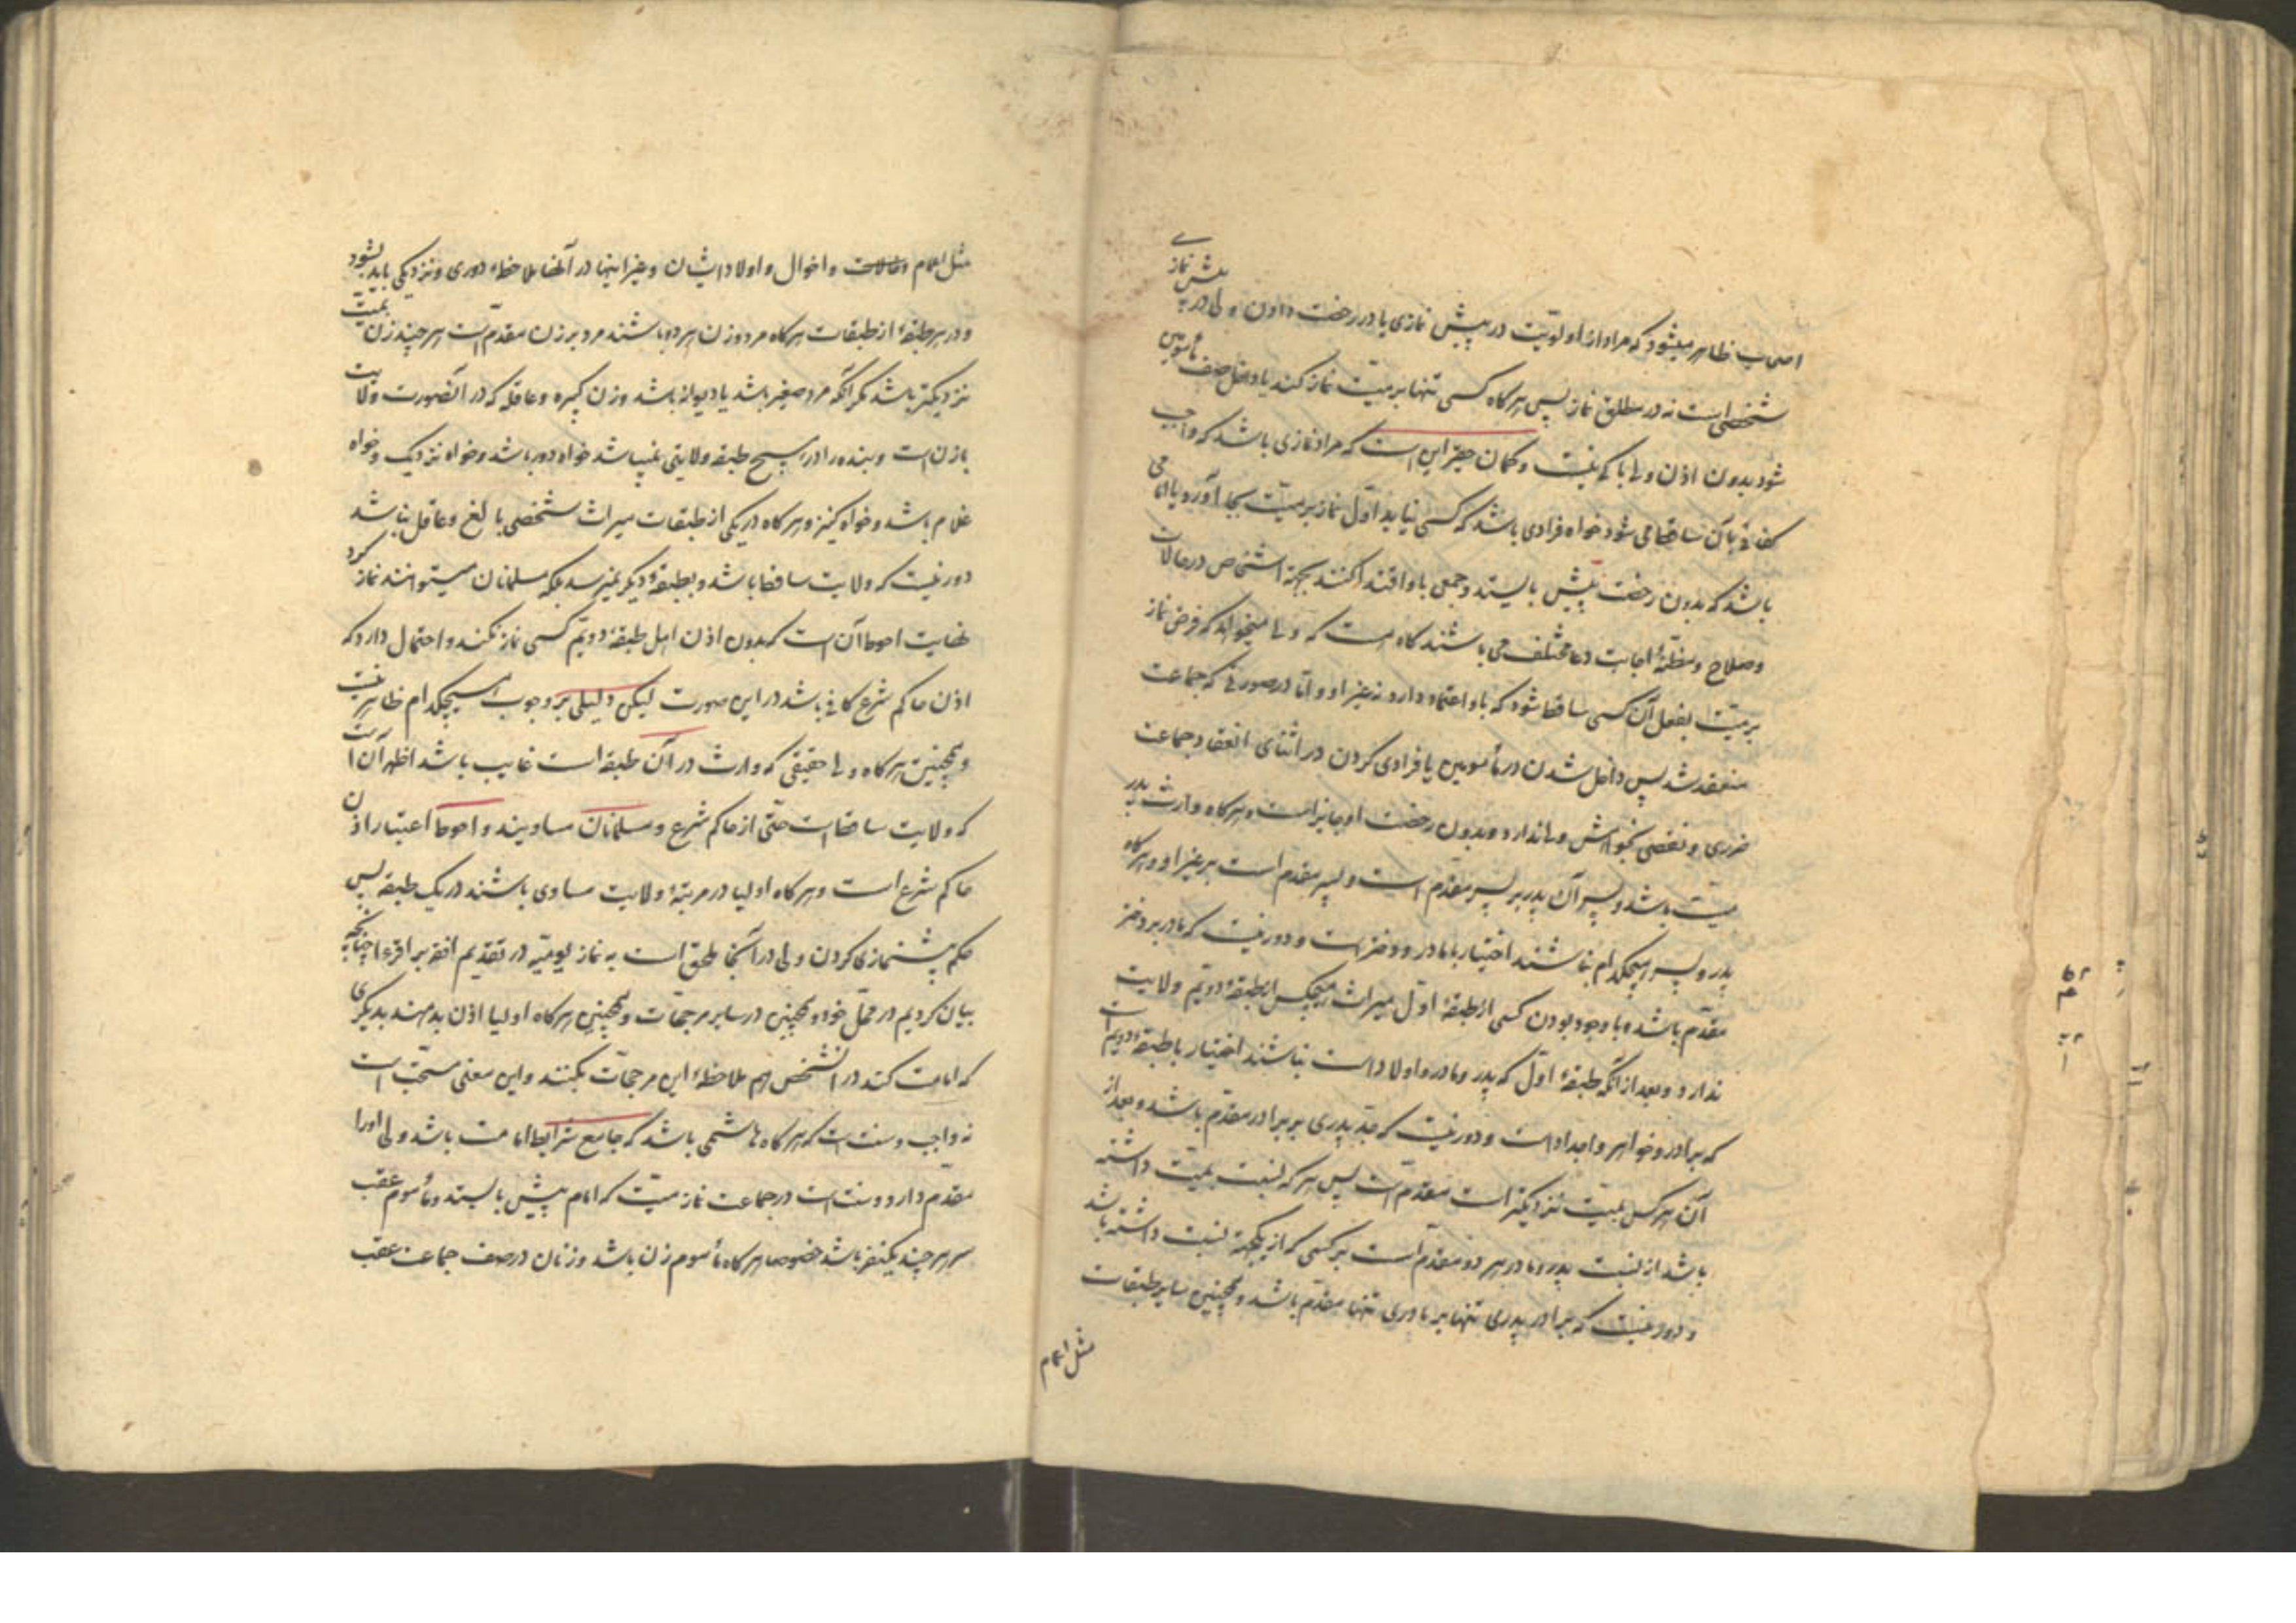 اصحاب ظاهر میشود که مراد از اولویّت در پیش نمازی یا در رخصت دادن ولی در پیش نمازی
شخصی است نه در مطلق نماز پس هرگاه کسی تنها بر میّت نماز کند یا داخل صف مأمومین
شود بدون اذن ولی باکی نیست و گمان حقیر این است که مراد نمازی باشد که واجب
کفائی بآن ساقط می شود خواه فرادی باشد که کسی نیاید اوّل نماز بر میّت بجا آورد یا امامی
باشد که بدون رخصت پیش بایستد و جمعی باو اقتدا کنند بجهة اشخاص در حالات
و صلاح و مظنّهٔ اجابت دعا مختلف می باشند گاه هست که ولی میخواهد که فرض نماز
بر میّت بفعل آن کسی ساقط شود که باو اعتماد دارد نه غیر او و امّا در صورتی که جماعت
منعقد شد پس داخل شدن در مأمومین یا فرادی کردن در اثنای انعقاد جماعت
ضرری و نقصی بخواهش ولی ندارد و بدون رخصت او جایز است و هرگاه وارث پدر
میّت باشد و پسر آن پدر بر پسر مقدّم است و پسر مقدم است بر غیر او و هرگاه
پدر و پسر هیچکدام نباشند اختیار با مادر و دختر است و دور نیست که مادر بر دختر
مقدّم باشد و با وجود بودن کسی از طبقهٔ اوّل میراث هیچکس از طبقهٔ دویّم ولایت
ندارد و بعد از آنکه طبقهٔ اوّل که پدر و مادر و اولاد است نباشند اختیار با طبقهٔ دویّم است
که برادر و خواهر و اجداد است و دور نیست که جدّ پدری بر برادر مقدّم باشد و بعد از
آن هر کس بمیّت نزدیکتر است مقدّم است پس هر که نسبت بمیّت داشته
باشد از نسبت پدر و مادر هر دو مقدّم است بر کسی که از یکجهة نسبت داشته باشد
و دور نیست که برادر پدری تنها بر مادری تنها مقدّم باشد و همچنین سایر طبقات
مثل اعمام
مثل اعمام و خالات و اخوال و اولاد ایشان و غیر اینها در آنها ملاحظهٔ دوری و نزدیکی باید بشود
و در هر طبقهٔ از طبقات هرگاه مرد و زن هر دو باشند مرد بر زن مقدّم است هر چند زن بمیّت
نزدیکتر باشد مگر آنکه مرد صغیر باشد یا دیوانه باشد و زن کبیره و عاقله که در آنصورت ولایت
با زن است و بنده را در هیچ طبقه ولایتی نمیباشد خواه دور باشد و خواه نزدیک و خواه
غلام باشد و خواه کنیز و هرگاه در یکی از طبقات میراث شخصی بالغ و عاقل نباشد
دور نیست که ولایت ساقط باشد و بطبقهٔ دیگر نمیرسد بلکه مسلمانان میتوانند نماز کرد
نهایت احوط آن است که بدون اذن اهل طبقهٔ دویّم کسی نماز نکند و احتمال دارد که
اذن حاکم شرع کافی باشد در این صورت لیکن دلیلی بر وجوب هیچکدام ظاهر نیست
و همچنین هرگاه ولی حقیقی که وارث در آن طبقه است غایب باشد اظهر آن است
که ولایت ساقط است حتّی از حاکم شرع و مسلمانان مساویند و احوط اعتبار اذن
حاکم شرع است و هرگاه اولیا در مرتبهٔ ولایت مساوی باشند در یک طبقه پس
حکم پیشنمازی کردن ولی در آنجا ملحق است به نماز یومیّه در تقدیم افقه بر اقرء چنانچه
بیان کردیم در محلّ خود و همچنین در سایر مرجحّات و همچنین هرگاه اولیا اذن بدهند بدیگری
که امامت کند در آنشخص هم ملاحظهٔ این مرجحّات بکنند و این معنی مستحبّ است
نه واجب و سنت است که هرگاه هاشمی باشد که جامع شرایط امامت باشد ولی او را
مقدّم دارد و سنت است در جماعت نماز میّت که امام پیش بایستد و مأموم عقب
سر هر چند یکنفر باشد خصوصا هرگاه مأموم زن باشد و زنان در صف جماعت عقب